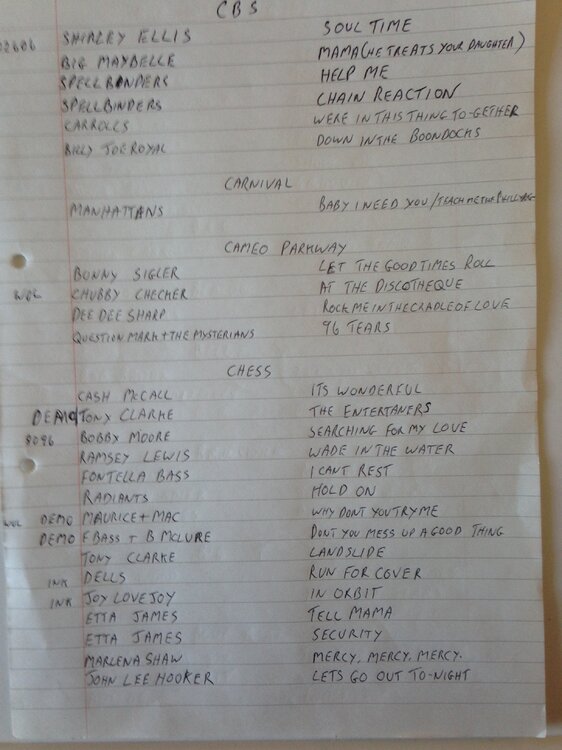 CBS
SHIRLEY ELLIS SOUL TIME
BIG MAYBELLE MAMA (HE TREATS YOUR DAUGHTER)
SPELLBINDERS HELP ME
SPELLBINDERS CHAIN REACTION
CARROLLS WERE IN THIS THING TO-GETHER
BILLY JOE ROYAL DOWN IN THE BOONDOCKS
CARNIVAL
MANHATTANS BABY I NEED YOU / TEACH ME THE
CAMEO PARKWAY
BUNNY SIGLER LET THE GOOD TIMES ROLL
WOL CHUBBY CHECKER AT THE DISCOTHEQUE
DEE DEE SHARP ROCK ME IN THE CRADLE OF LOVE
QUESTION MARK + THE MYSTERIANS 96 TEARS
CHESS
CASH McCALL ITS WONDERFUL
DEMO TONY CLARKE THE ENTERTANERS
8096 BOBBY MOORE SEARCHING FOR MY LOVE
RAMSEY LEWIS WADE IN THE WATER
FONTELLA BASS I CANT REST
RADIANTS HOLD ON
WOL DEMO MAURICE + MAC WHY DONT YOU TRY ME
DEMO F BASS + B McLURE DONT YOU MESS UP A GOOD THING
TONY CLARKE LANDSLIDE
INK DELLS RUN FOR COVER
INK JOY LOVEJOY IN ORBIT
ETTA JAMES TELL MAMA
ETTA JAMES SECURITY
MARLENA SHAW MERCY, MERCY, MERCY.
JOHN LEE HOOKER LETS GO OUT TO-NIGHT